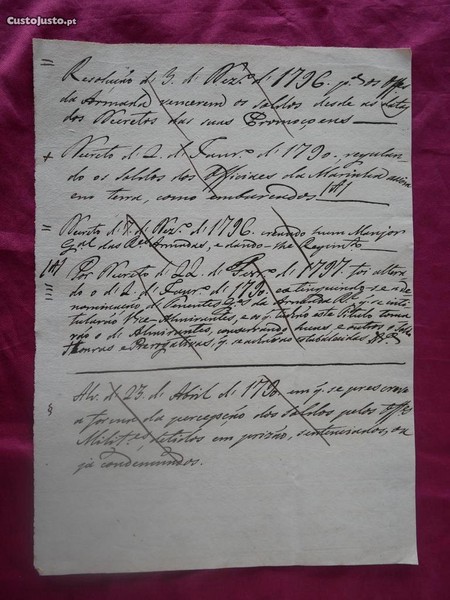 CustoJusto.pt
= Resolução d. 3. d. Dez.º d. 1796. p.ª os Offes
da Armada vencerem os Soldos desde as datas
dos Decretos das suas Promoçoens
+ Decreto d. 2. d. Janr.º d. 1790. regulan
do os Soldos dos Officiaes da Marinha assim
em terra, como embarcados (A)
= Decreto d. 7. d. Dez.º d. 1796. creando hum Manjor
G.al das R.es Armadas, e dando-lhe Regim.to
(A) Por Decreto d. 22. d. Fevr.º d. 1797. foi altera
do o d. 2. d. Janr.º d. 1790. extinguindo-se a de
nominação d. Tenentes G.es da Armada R.l q. se inti
tularão Vice-Almirantes, e os q. tinhão este Titulo toma
rão o d. Almirantes, conservando huns e outros o Soldo
Honras e Prerogativas, q. se achavão estabelecidas
§ Alv. d. 23. d. Abril d. 1790. em q. se prescreve
a forma da percepção dos Soldos pelos Offes
Milit.es detidos em prizão, sentenciados, ou
já condemnados.